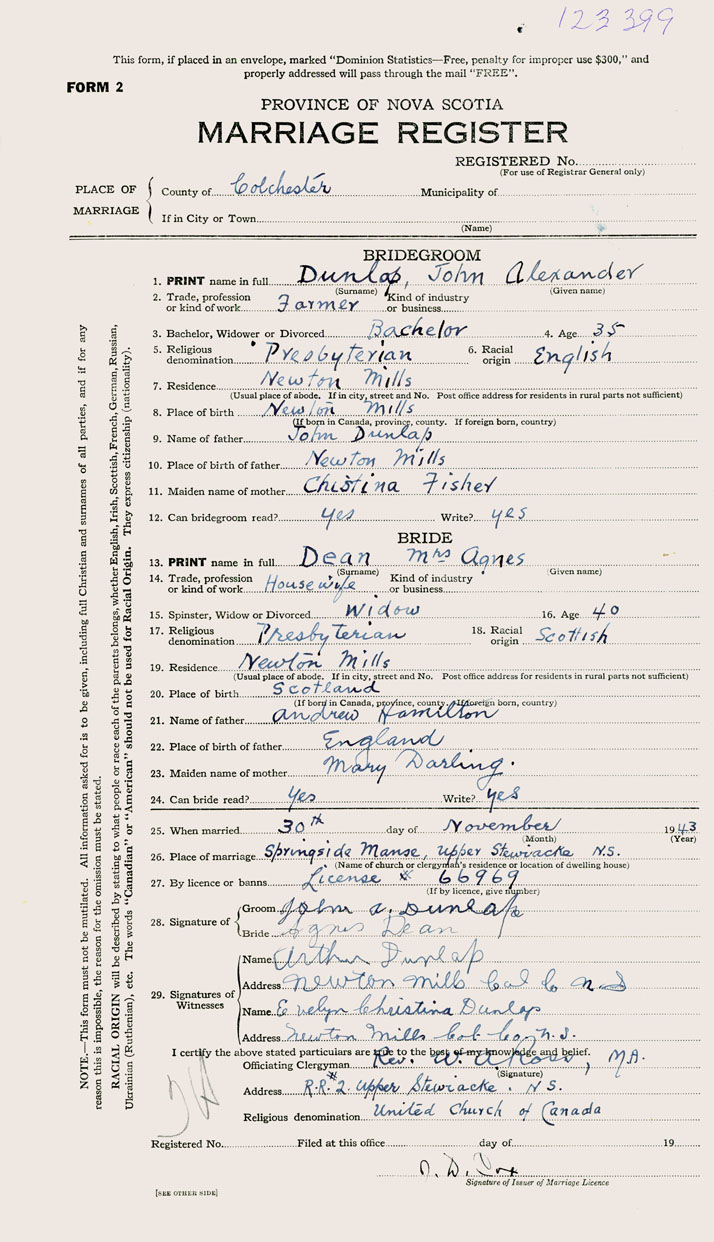 123399
This form, if placed in an envelope, marked "Dominion Statistics—Free, penalty for improper use $300," and
properly addressed will pass through the mail "FREE".
FORM 2
PROVINCE OF NOVA SCOTIA
MARRIAGE REGISTER
REGISTERED No.
(For use of Registrar General only)
PLACE OF MARRIAGE
County of Colchester Municipality of
If in City or Town
(Name)
BRIDEGROOM
1. PRINT name in full Dunlap, John Alexander
(Surname) (Given name)
2. Trade, profession or kind of work Farmer Kind of industry or business
3. Bachelor, Widower or Divorced Bachelor 4. Age 35
5. Religious denomination Presbyterian 6. Racial origin English
7. Residence Newton Mills
(Usual place of abode. If in city, street and No. Post office address for residents in rural parts not sufficient)
8. Place of birth Newton Mills
(If born in Canada, province, county. If foreign born, country)
9. Name of father John Dunlap
10. Place of birth of father Newton Mills
11. Maiden name of mother Christina Fisher
12. Can bridegroom read? yes Write? yes
BRIDE
13. PRINT name in full Dean Mrs Agnes
(Surname) (Given name)
14. Trade, profession or kind of work Housewife Kind of industry or business
15. Spinster, Widow or Divorced Widow 16. Age 40
17. Religious denomination Presbyterian 18. Racial origin Scottish
19. Residence Newton Mills
(Usual place of abode. If in city, street and No. Post office address for residents in rural parts not sufficient)
20. Place of birth Scotland
(If born in Canada, province, county. If foreign born, country)
21. Name of father Andrew Hamilton
22. Place of birth of father England
23. Maiden name of mother Mary Darling.
24. Can bride read? Yes Write? yes
25. When married 30th day of November 1943
(Month) (Year)
26. Place of marriage Springside Manse, Upper Stewiacke N.S.
(Name of church or clergyman's residence or location of dwelling house)
27. By licence or banns License # 66969
(If by licence, give number)
28. Signature of Groom John A. Dunlap
Bride Agnes Dean
29. Signatures of Witnesses
Name Arthur Dunlap
Address Newton Mills Col Co N S
Name Evelyn Christina Dunlap
Address Newton Mills Col Co, N.S.
I certify the above stated particulars are true to the best of my knowledge and belief.
Officiating Clergyman Rev. W. A. Ross, M.A.
(Signature)
Address R.R. #2 Upper Stewiacke. N.S.
Religious denomination United Church of Canada
Registered No. Filed at this office day of 19
Signature of Issuer of Marriage Licence
[SEE OTHER SIDE]
NOTE.—This form must not be mutilated. All information asked for is to be given, including full Christian and surnames of all parties, and if for any
reason this is impossible, the reason for the omission must be stated.
RACIAL ORIGIN will be described by stating to what people or race each of the parents belongs, whether English, Irish, Scottish, French, German, Russian,
Ukrainian (Ruthenian), etc. The words "Canadian" or "American" should not be used for Racial Origin. They express citizenship (nationality).